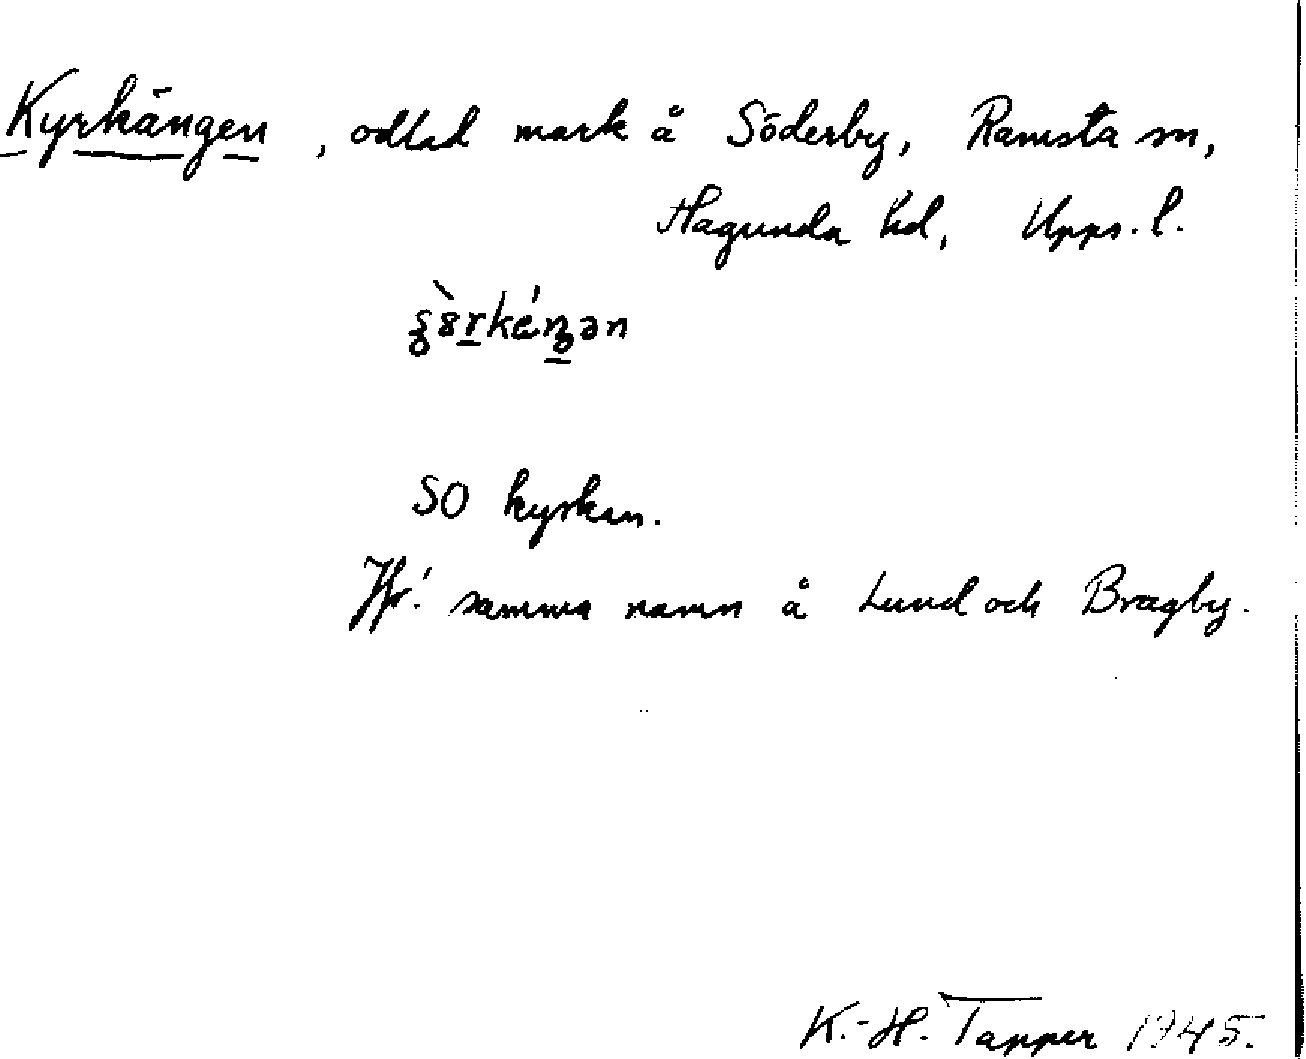 Kyrkängen, odlad mark å Söderby, Ramsta sn,
Hagunda hd, Upps. l.
SO kyrkan.
Jfr! samma namn å Lund och Bragby.
K.-H. Tapper 1945.